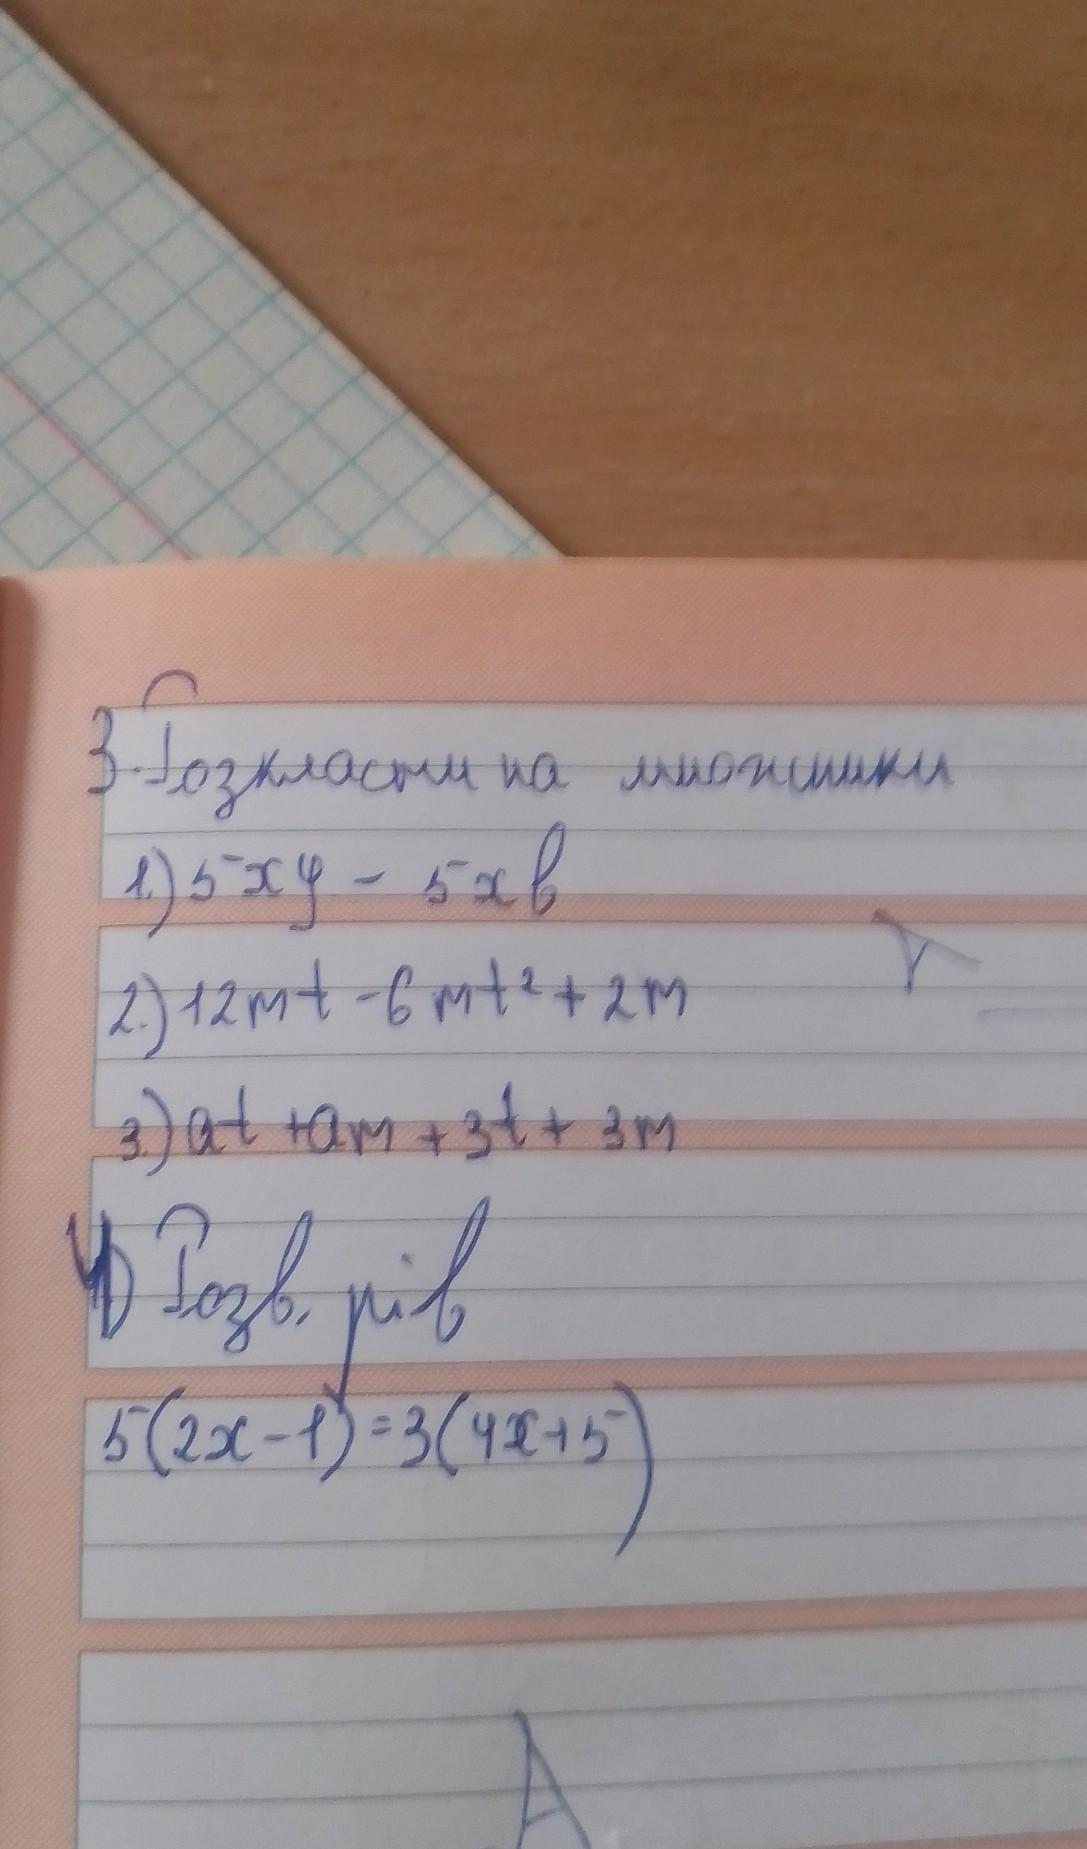 3. Розкласти на множники
1.) 5xy - 5xb
2.) 12mt - 6mt² + 2m
3.) at + am + 3t + 3m
4) Розв. рів
5(2x-1)=3(4x+5)
А